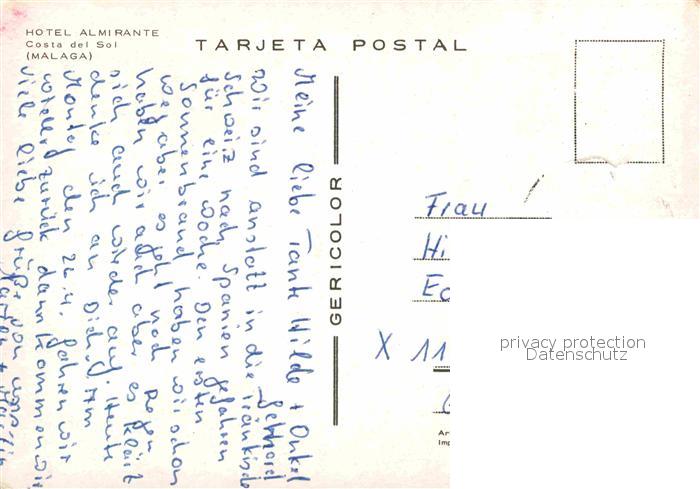 HOTEL ALMIRANTE
Costa del Sol
(MALAGA)
TARJETA POSTAL
Meine liebe Tante Hilde + Onkel
Gebhard
Wir sind anstatt in die Fränkische
Schweiz nach Spanien gefahren
für eine Woche. Den ersten
Sonnenbrand haben wir schon
weg aber es geht noch. Regen
haben wir auch aber es klärt
sich auch wieder auf. Heute
denke ich an Dich. Am
Montag den 26.4. fahren wir
wieder zurück dann kommen wir
viele liebe Grüße von
GERICOLOR
Frau
Hi
X 11
privacy protection
Datenschutz